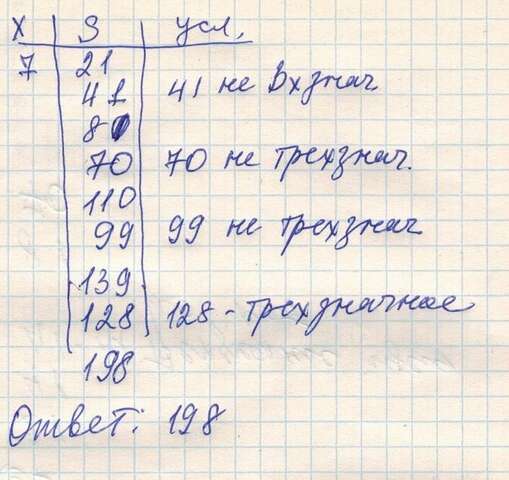 X S усл.
7 21
41 41 не вхзнач
80
70 70 не трехзнач.
110
99 99 не трехзнач
139
128 128 - трехзначное
198
Ответ: 198